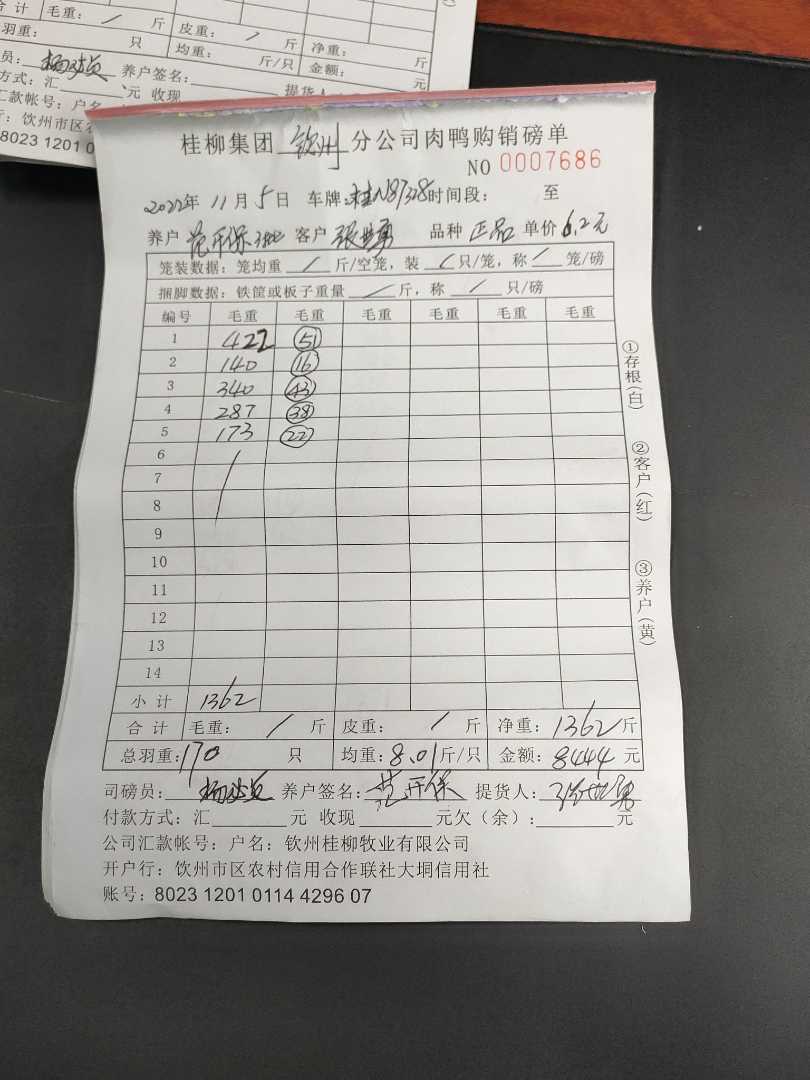 合计 毛重: / 斤 皮重: / 斤 净重: 斤
羽重: 只 均重: 斤/只 金额: 元
员: 养户签名: 提货人
方式: 汇 元 收现
汇款帐号: 户名:
行: 钦州市区农
8023 1201 0
桂柳集团 钦州 分公司肉鸭购销磅单
NO 0007686
2022年 11月 5日 车牌: 桂N87328 时间段: 至
养户 范开保 客户 张世勇 品种 正品 单价 6.2元
笼装数据: 笼均重 / 斤/空笼, 装 / 只/笼, 称 / 笼/磅
捆脚数据: 铁筐或板子重量 / 斤, 称 / 只/磅
编号 毛重 毛重 毛重 毛重 毛重 毛重
1 422 51
2 140 16
3 340 43
4 287 38
5 173 22
6 /
7
8
9
10
11
12
13
14
小计 1362
合计 毛重: / 斤 皮重: / 斤 净重: 1362斤
总羽重: 170 只 均重: 8.01斤/只 金额: 8444 元
司磅员: 养户签名: 范开保 提货人: 张世勇
付款方式: 汇 元 收现 元欠(余): 元
公司汇款帐号: 户名: 钦州桂柳牧业有限公司
开户行: 钦州市区农村信用合作联社大垌信用社
账号: 8023 1201 0114 4296 07
①存根(白)
②客户(红)
③养户(黄)